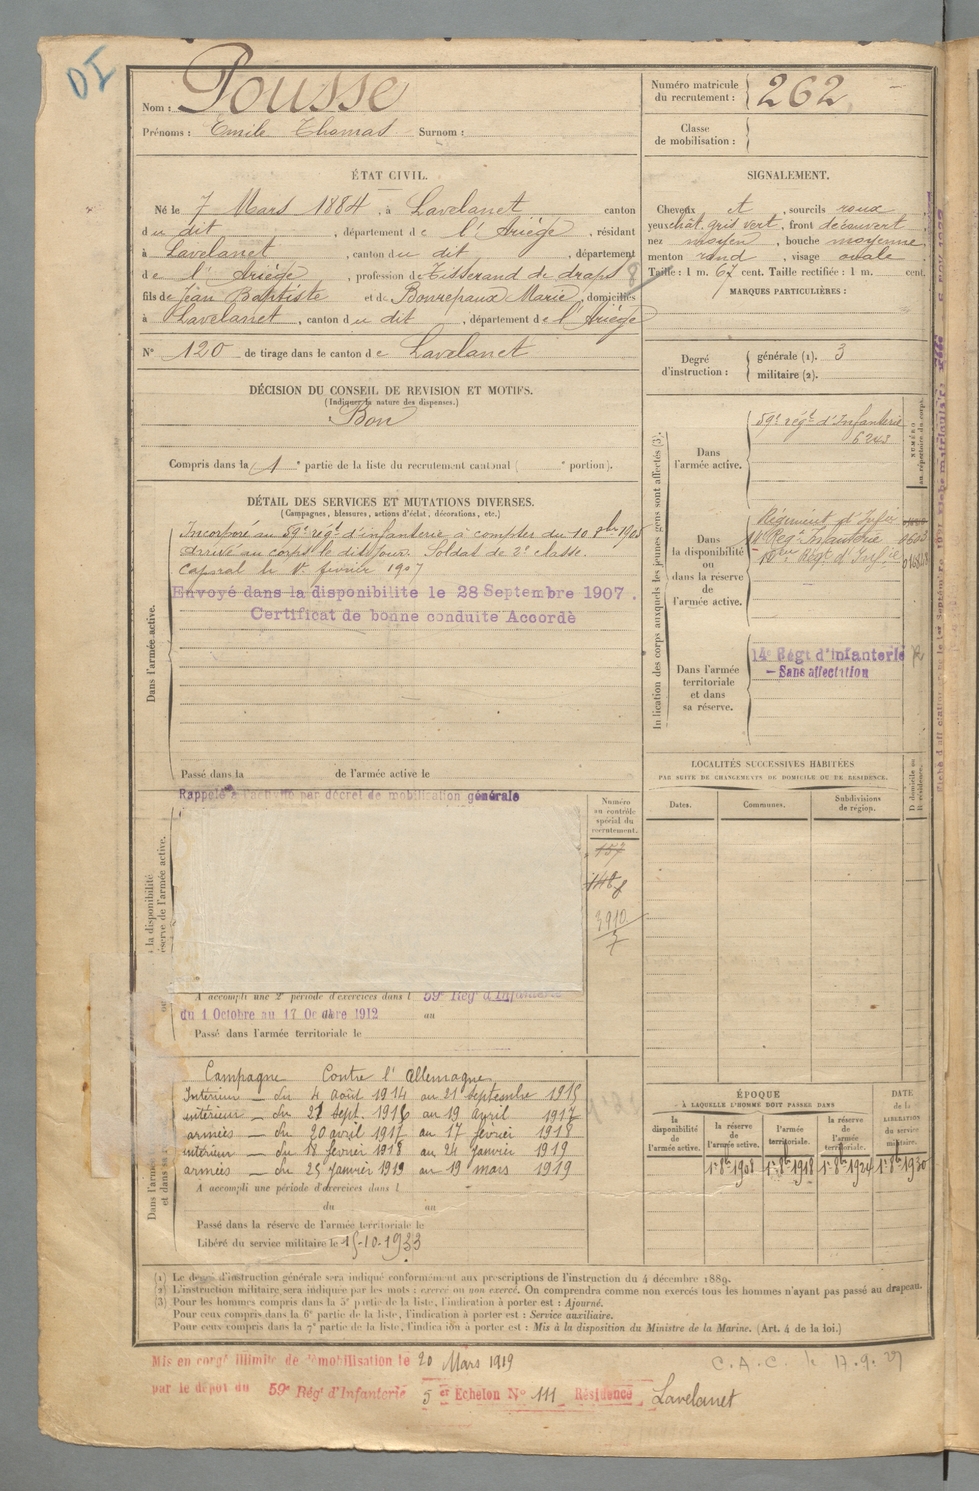 DI
Nom : Pousse
Prénoms : Emile Thomas Surnom :
Numéro matricule
du recrutement : 262
Classe
de mobilisation :
ÉTAT CIVIL.
Né le 7 Mars 1884, à Lavelanet canton
du dit, département de l'Ariège, résidant
à Lavelanet, canton du dit, département
de l'Ariège, profession de Tisserand de draps
fils de Jean Baptiste et de Bonrepaux Marie, domiciliés
à Lavelanet, canton du dit, département de l'Ariège
N° 120 de tirage dans le canton de Lavelanet
SIGNALEMENT.
Cheveux et, sourcils roux
yeux chât. gris vert, front découvert
nez moyen, bouche moyenne,
menton rond, visage ovale
Taille : 1 m. 67 cent. Taille rectifiée : 1 m. cent.
MARQUES PARTICULIÈRES :
Degré
d'instruction :
générale (1). 3
militaire (2).
DÉCISION DU CONSEIL DE REVISION ET MOTIFS.
(Indiquer la nature des dispenses.)
Bon
Compris dans la 1e partie de la liste du recrutement cantonal ( e portion).
DÉTAIL DES SERVICES ET MUTATIONS DIVERSES.
(Campagnes, blessures, actions d'éclat, décorations, etc.)
Dans l'armée active.
Incorporé au 59e régt d'infanterie à compter du 10 8bre 1905
Arrivé au corps le dit jour. Soldat de 2e classe.
Caporal le 1r février 1907
Envoyé dans la disponibilite le 28 Septembre 1907.
Certificat de bonne conduite Accordè
Passé dans la de l'armée active le
Rappelé à l'activité par décret de mobilisation générale
Numéro
au contrôle
spécial du
recrutement.
157
148
3910
7
A accompli une 2e période d'exercices dans l 59e Rég d'Infanterie
du 1 Octobre au 17 Octobre 1912 au
Passé dans l'armée territoriale le
Campagne Contre l'Allemagne
Intérieur — du 4 août 1914 au 21 septembre 1915
intérieur — du 21 sept. 1916 au 19 avril 1917
armées — du 20 avril 1917 au 17 février 1918
intérieur — du 18 février 1918 au 24 janvier 1919
armées — du 25 janvier 1919 au 19 mars 1919
A accompli une période d'exercices dans l
du au
Passé dans la réserve de l'armée territoriale le
Libéré du service militaire le 15-10-1933
Indication des corps auxquels les jeunes gens sont affectés (3).
NUMÉRO
au répertoire du corps.
Dans
l'armée active.
59e régt d'Infanterie
6243
Dans
la disponibilité
ou
dans la réserve
de
l'armée active.
Régiment d'Infie
Regt Infanterie
Régt d'Infie
Dans l'armée
territoriale
et dans
sa réserve.
14e Régt d'infanterie
— Sans affectation
LOCALITÉS SUCCESSIVES HABITÉES
PAR SUITE DE CHANGEMENTS DE DOMICILE OU DE RÉSIDENCE.
Dates.
Communes.
Subdivisions
de région.
D domicile ou
R résidence.
ÉPOQUE
À LAQUELLE L'HOMME DOIT PASSER DANS
DATE
de la
LIBÉRATION
du service
militaire.
la
disponibilité
de
l'armée active.
la réserve
de
l'armée active.
l'armée
territoriale.
la réserve
de
l'armée
territoriale.
1r 8bre 1908
1r 8bre 1918
1r 8bre 1924
1r 8bre 1930
(1) Le degré d'instruction générale sera indiqué conformément aux prescriptions de l'instruction du 4 décembre 1889.
(2) L'instruction militaire sera indiquée par les mots : exercé ou non exercé. On comprendra comme non exercés tous les hommes n'ayant pas passé au drapeau.
(3) Pour les hommes compris dans la 5e partie de la liste, l'indication à porter est : Ajourné.
Pour ceux compris dans la 6e partie de la liste, l'indication à porter est : Service auxiliaire.
Pour ceux compris dans la 7e partie de la liste, l'indication à porter est : Mis à la disposition du Ministre de la Marine. (Art. 4 de la loi.)
Mis en congé illimité de démobilisation le 20 Mars 1919
par le dépot du 59e Régt d'Infanterie 5 er Echelon N° 111 Résidence Lavelanet
C.A.C. le 17.9.27